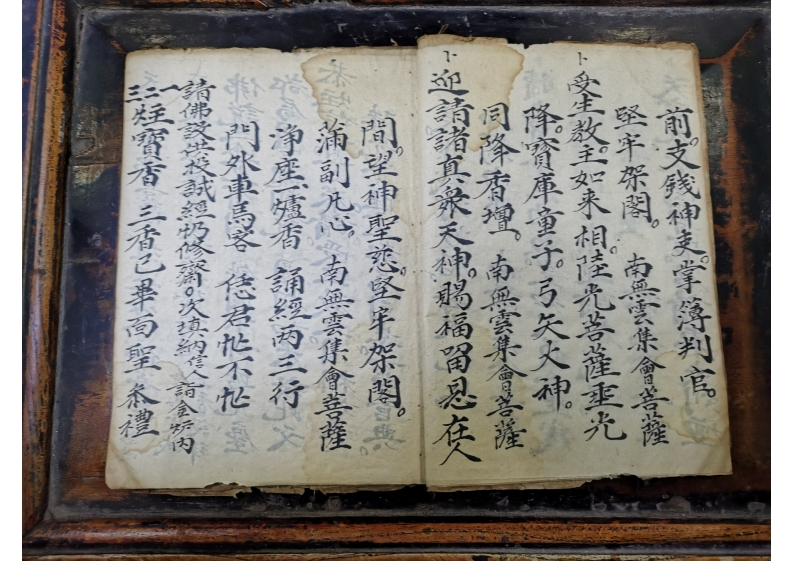 前。支錢神吏。掌簿判官。
堅牢架閣。 南無雲集會菩薩
卜受生教主如来相。陸光菩薩垂光
降。寳庫童子。弓矢火神。
同降香壇。 南無雲集會菩薩
卜迎請諸真衆天神。賜福留恩在人
間。望神聖慈。堅牢架閣。
滿副凡心。 南無雲集會菩薩
浄座一爐香 誦經两三行
門外車馬客 恁君忙不忙
請佛設供投誠經仍修齋。次填納信人諳金炉内
一二三炷寳香 三香已畢向聖叅禮